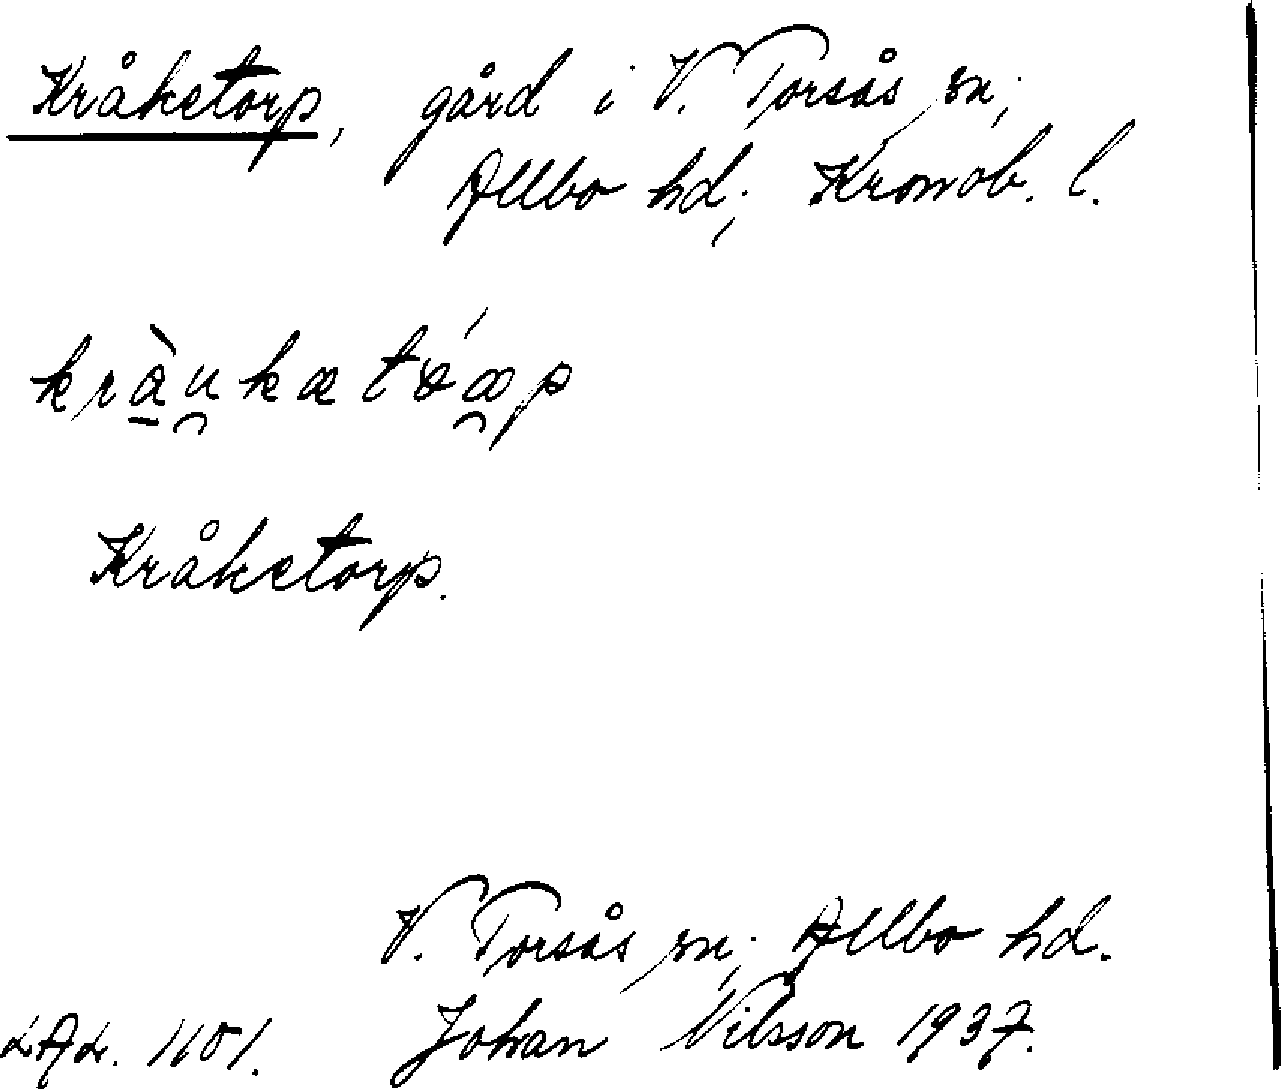 Kråketorp, gård i V. Torsås sn;
Allbo hd; Kronob. l.
kràu̯kætǿæ̯p
Kråketorp.
V. Torsås sn; Allbo hd.
LAL. 1101. Johan Nilsson 1937.